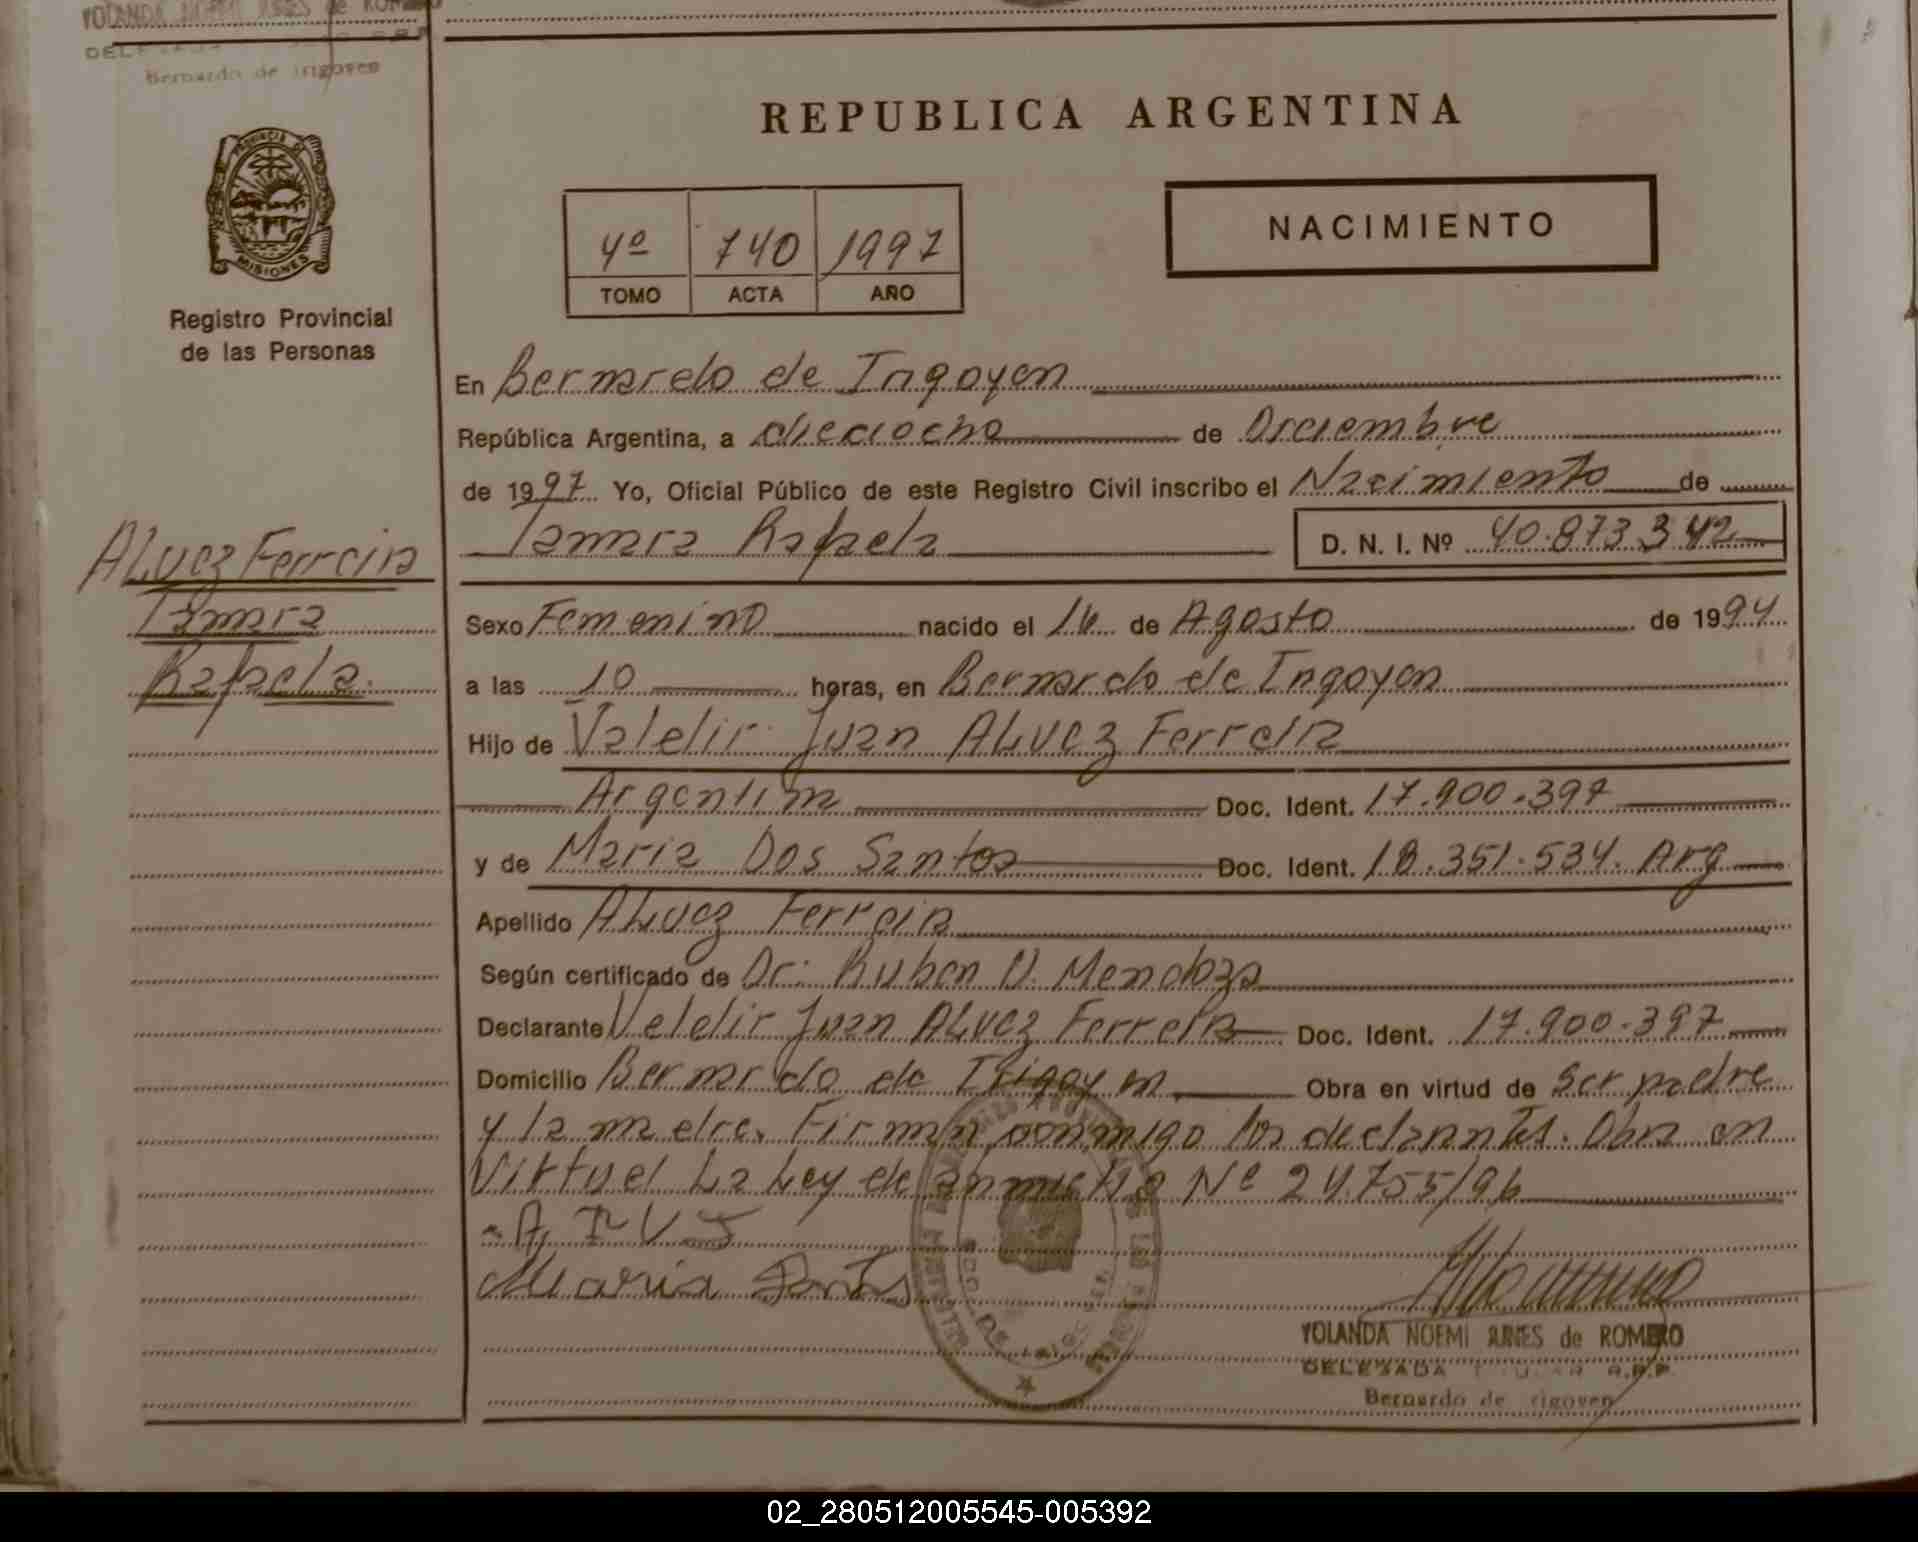 YOLANDA NOEMI JUNES de ROMERO
Bernardo de Irigoyen
REPUBLICA ARGENTINA
PROVINCIA DE MISIONES
Registro Provincial
de las Personas
4º 740 1997
TOMO ACTA AÑO
NACIMIENTO
En Bernardo de Irigoyen
República Argentina, a dieciocho de Diciembre
de 1997 Yo, Oficial Público de este Registro Civil inscribo el Nacimiento de
Tamara Rafaela D. N. I. Nº 40.873.342
ALvez Ferreira
Tamara
Rafaela.
Sexo Femenino nacido el 16 de Agosto de 1994
a las 10 horas, en Bernardo de Irigoyen
Hijo de Valdir Juan ALvez Ferreira
Argentina Doc. Ident. 17.900.397
y de Maria Dos Santos Doc. Ident. 18.351.534. Arg
Apellido ALvez Ferreira
Según certificado de Dr: Ruben Mendoza
Declarante Valdir Juan ALvez Ferreira Doc. Ident. 17.900.397
Domicilio Bernardo de Irigoyen Obra en virtud de ser padre
y la madre. Firman conmigo los declarantes. Obra en
Virtud La Ley de amnistia Nº 24.755/96
Maria
YOLANDA NOEMI JUNES de ROMERO
DELEGADA
Bernardo de Irigoyen
02_280512005545-005392